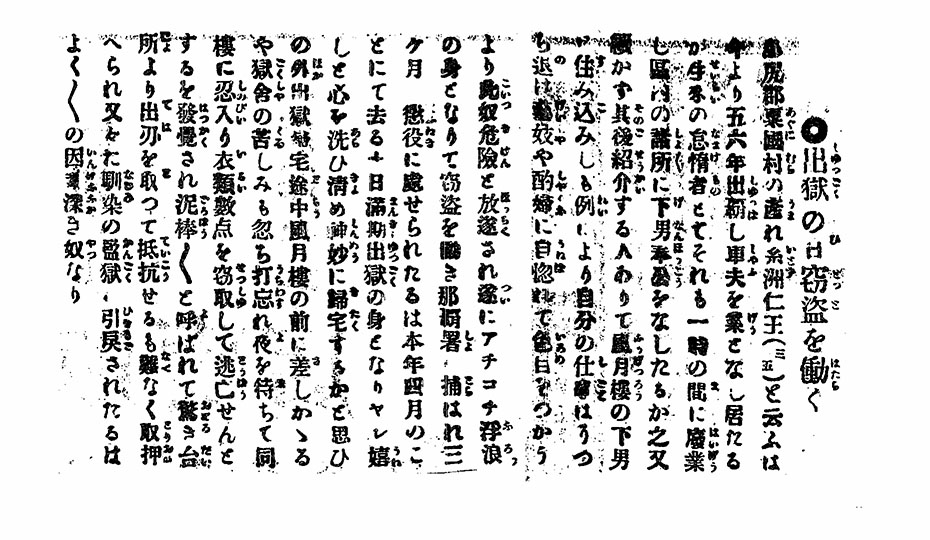 出獄の日窃盗を働く
島尻郡粟國村の産れ糸洲仁王(三五)と云ふは
年より五六年出覇し車夫を業となし居たる
が生来の怠惰者とてそれも一時の間に廢業
し區内の諸所に下男奉公をなしたるが之又
かず其後紹介する人ありて風月樓の下男
住み込みしも例により自分の仕事はうつ
ち退け藝妓や酌婦に自惚れて色目をつかう
より此奴危險と放逐され遂にアチコチ浮浪
の身となりて窃盗を働き那覇署 捕はれ三
ケ月 懲役に處せられたるは本年四月のこ
とにて去る十日滿期出獄の身となりヤレ嬉
しと心を洗ひ清め神妙に歸宅するかと思ひ
の外出獄歸宅途中風月樓の前に差しかゝる
や獄舍の苦しみも忽ち打忘れ夜を待ちて同
樓に忍入り衣類數点を窃取して逃亡せんと
するを發覺され泥棒〱と呼ばれて驚き台
所より出刃を取つて抵抗せるも難なく取押
へられ又々た馴染の監獄 引戻されたるは
よく〱の因業深き奴なり